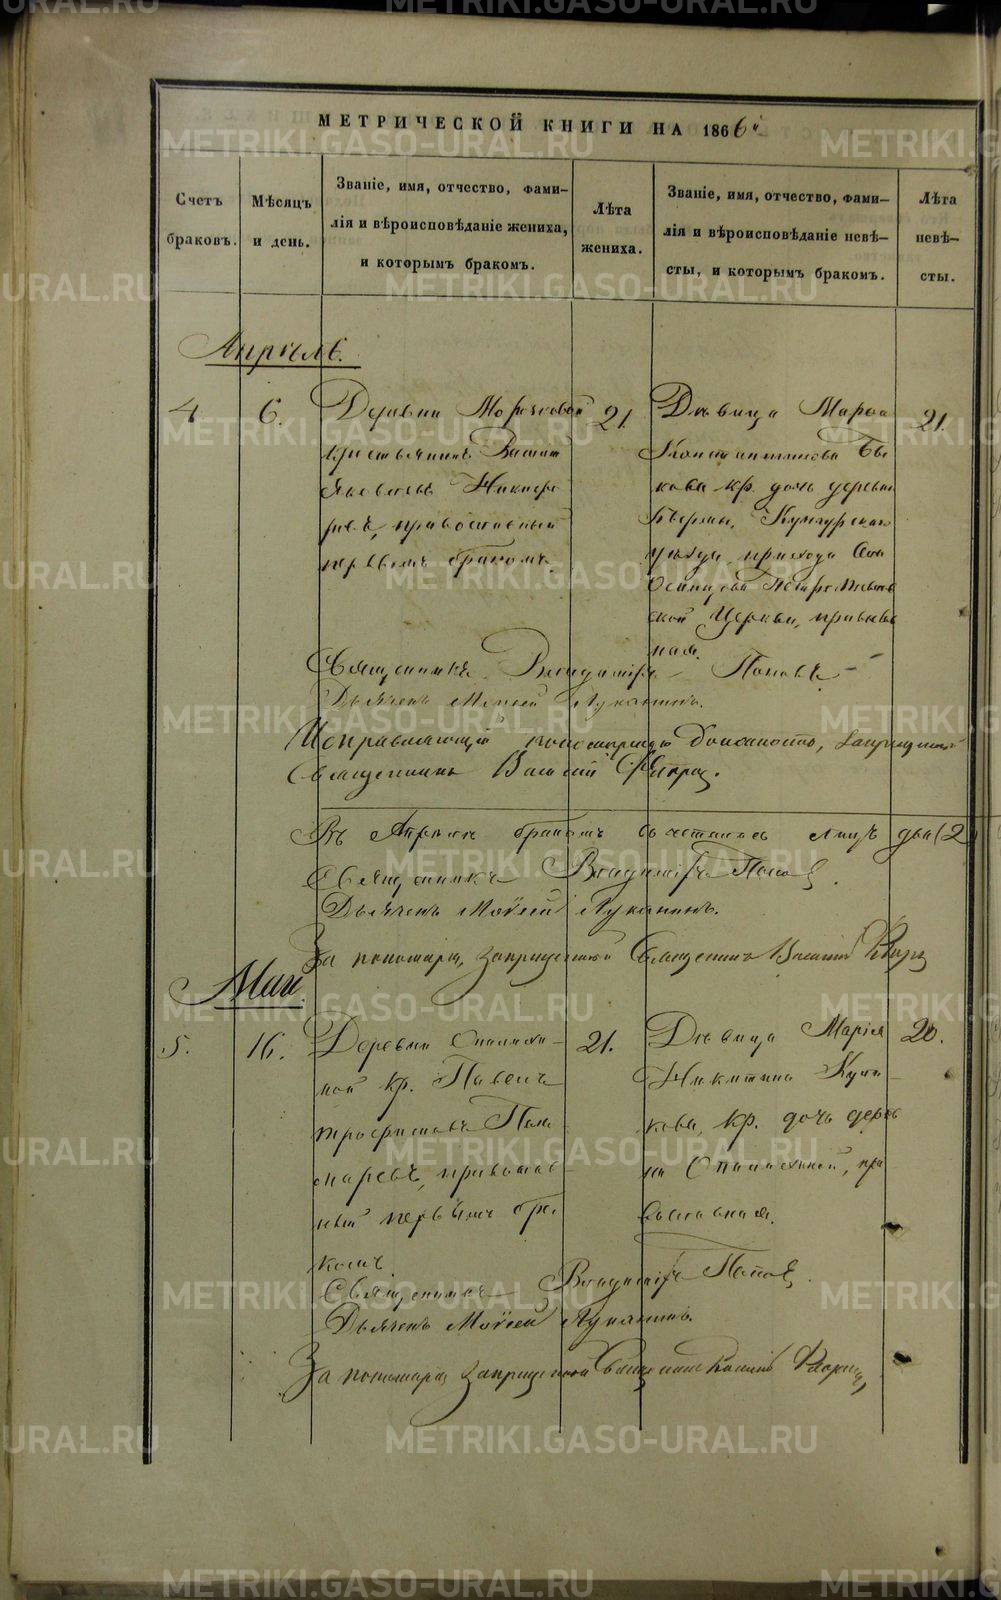 МЕТРИЧЕСКОЙ КНИГИ НА 1866й
Счетъ браковъ.
Мѣсяцъ и день.
Званіе, имя, отчество, фами-
лія и вѣроисповѣданіе жениха,
и которымъ бракомъ.
Лѣта жениха.
Званіе, имя, отчество, фами-
лія и вѣроисповѣданіе невѣ-
сты, и которымъ бракомъ.
Лѣта невѣ-
сты.
Апрѣль.
4
6.
Деревни
крестьянинъ
православный
первымъ бракомъ.
21.
Дѣвица
Константинова Бы
кова кр. дочь деревни
Кунгурскаго
уѣзда, прихода
ской Церкви, правосла
ная.
21.
Священникъ Владиміръ Поповъ
Дьячекъ Моисей Луканинъ.
Исправляющій пономарскую должность, запрещенный
Священникъ Василій
Въ Апрѣлѣ бракомъ сочеталось лицъ два (2
Священникъ Владиміръ Поповъ
Дьячекъ Моѵсей Луканинъ.
За пономаря, запрещенный Священникъ Василій
Маій.
5.
16.
Деревни
ной кр. Павелъ
Трофимовъ Поно
маревъ, православ
ный первымъ бра
комъ
21.
Дѣвица Марія
Никитина
кова, кр. дочь дерев
ни пра
вославная.
20.
Священникъ Владиміръ Поповъ
Дьячекъ Моѵсей Луканинъ.
За пономаря запрещенный Священникъ Василій
METRIKI.GASO-URAL.RU